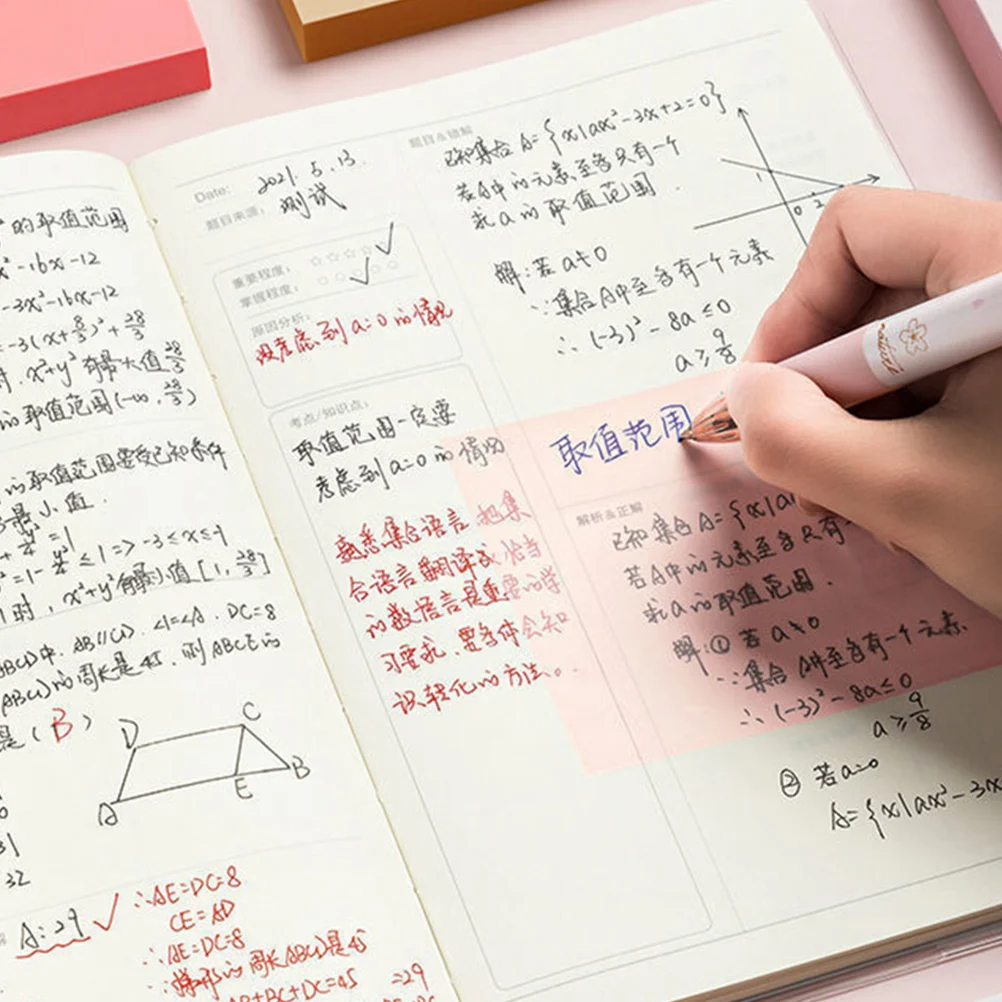 的取值范围
x²-16x-12
-3x²-16x-12
=-3(x+8/3)²+28/3
时. x²+y²有最大值28/3
的取值范围(-∞, 28/3)
的取值范围要受已知条件
最小值.
=1
≤1=>-3≤x≤-1
时, x²+y²有最小值[1, 28/3]
DC=8
的周长是45. 则
是(B)
D
C
A
E
B
31
32
A:29
∴AE=DC=8
CE=AD
∴AE=DC=8
∴梯形的周长ABCD是45
AB+BC+DC=45
=29
Date: 2021.5.13.
题目来源: 测试
重要程度:
掌握程度:
原因分析:
没考虑到a=0的情况
考点/知识点:
取值范围一定要
考虑到a=0的情况
熟悉集合语言,把集
合语言翻译成恰当
的数语言是重要的学
习要求,要多体会知
识转化的方法。
题目&错解
已知集合A={x|ax²-3x+2=0}
若A中的元素至多只有一个
求a的取值范围.
1
0 2
解:若a≠0
∵集合A中至多有一个元素
∴(-3)²-8a≤0
a≥9/8
取值范围
解析&正解
已知集合A={x|a
若A中的元素至多只有一
求a的取值范围.
解:①若a≠0
∵集合A中至多有一个元素.
∴(-3)²-8a≤0
a≥9/8
②若a=0
A={x|ax²-3x